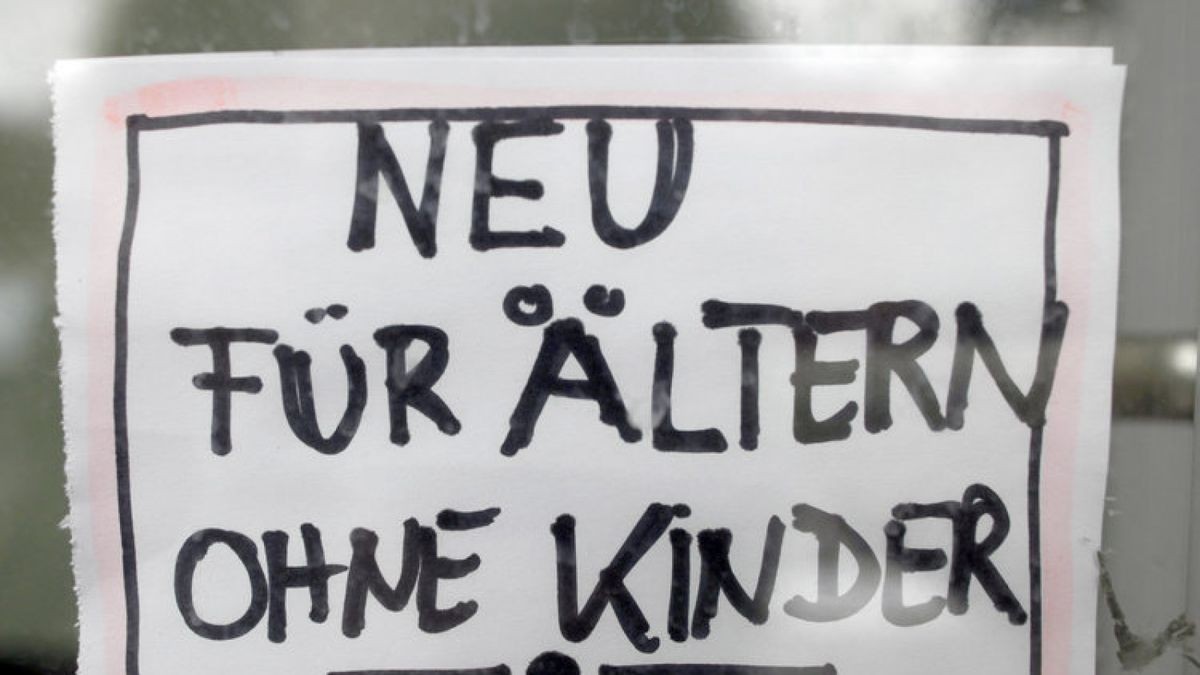 NEU
FÜR ÄLTERN
OHNE KINDER